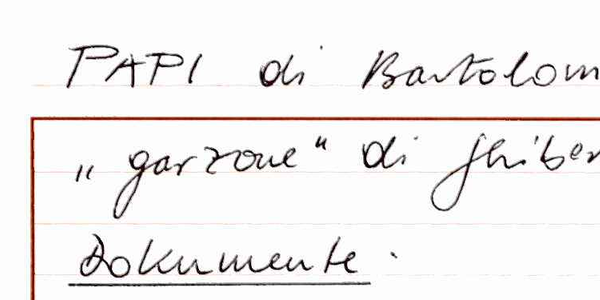 PAPI di Bartolom
„garzone“ di Ghiber
Dokumente.